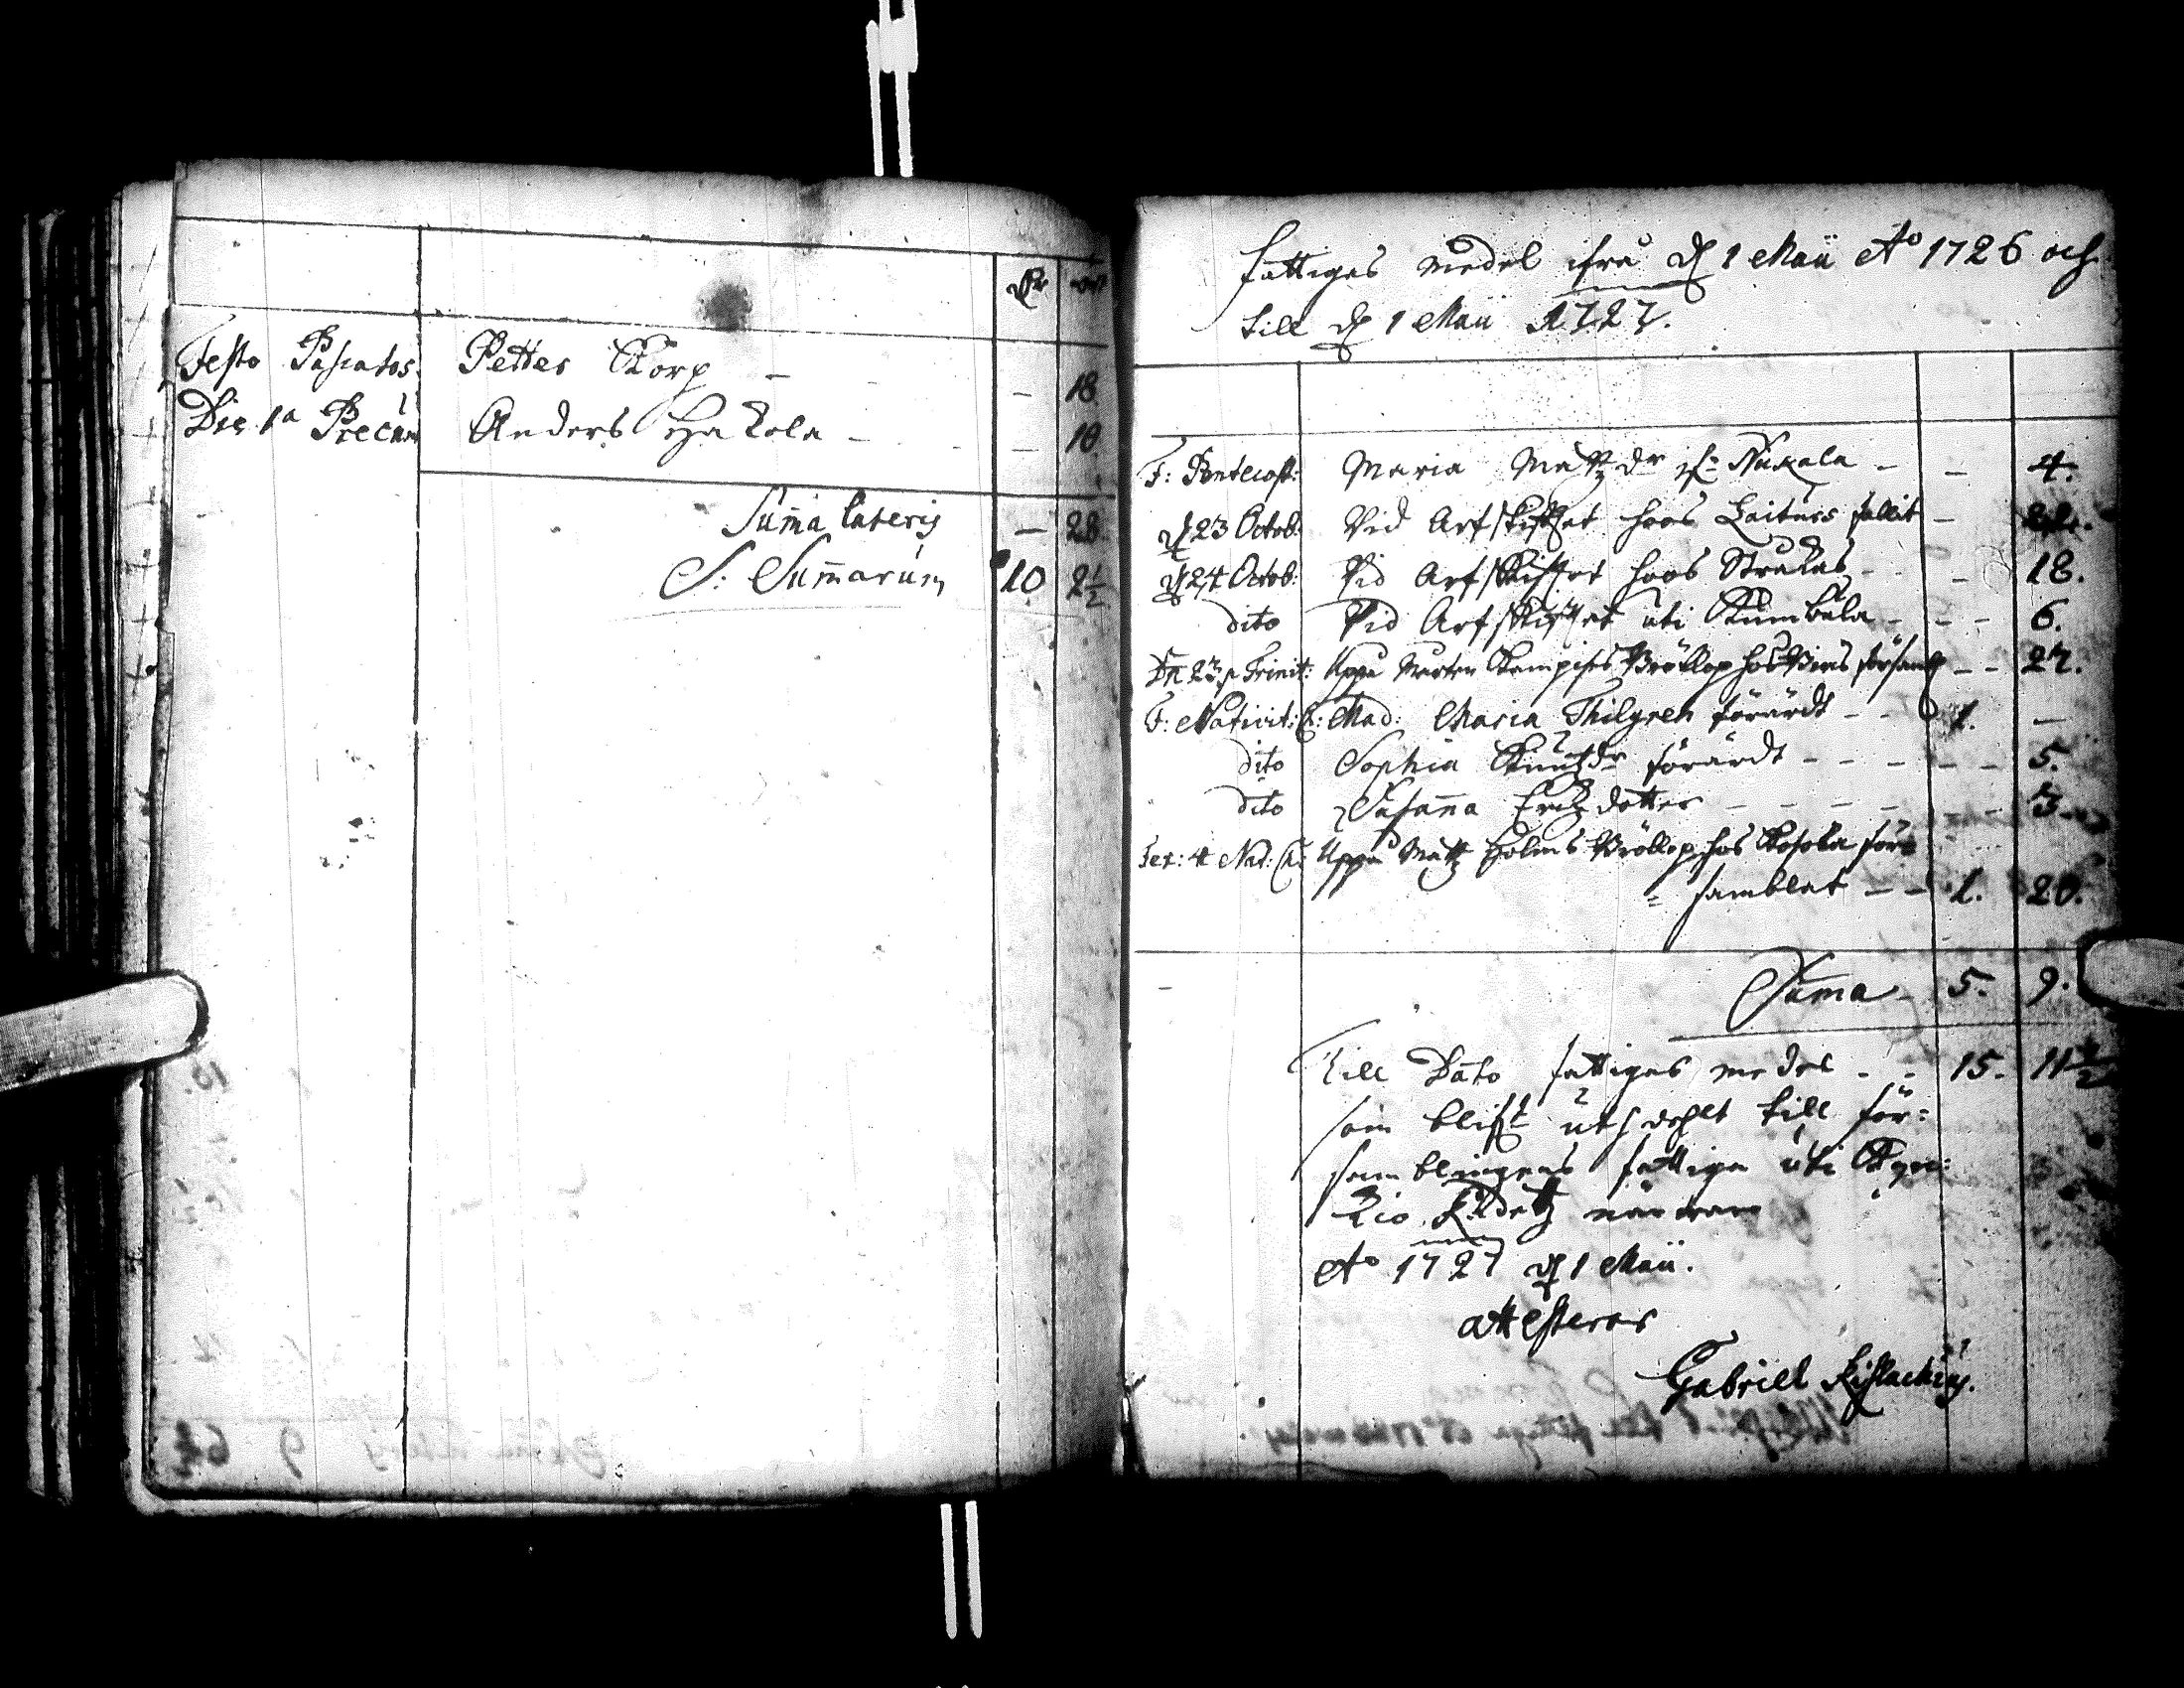 Dr öre
Festo Paschatos. Petter Korp – – 18
Die 1a Precum Anders Hakola – – 10.
Suma lateris – 28.
S: Summarum 10 2½
Fattiges medel ifrå d 1 Maii Ao 1726 och
till d 1 Maii 1727.
F: Pentecost: Maria Mattzdr – – 4.
d 23 Octob: Vid Arfskifftet hoos fallit –
d 24 Octob: Vid Arfskifftet hoos – – 18.
dito Vid Arfskifftet uti – – 6.
Dn 23 p Trinit: Uppå Bröllop hos – – 27.
F: Nativit: C: Mad: Maria Thilgren förärdt – – 1. –
dito Sophia Knutzdr förärdt – – – – – 5.
dito Susanna Erichzdotter – – – – –
Fer: 4 Nat: Chr: Uppå Matz Holms Bröllop hos för=
= samblat – – 1. 20.
Suma – 5. 9.
Till Dato fattiges medel – – 15. 11½
som blifit uthdehlt till för=
samblingens fattiga uti Kyro:
närwaro
Ao 1727 d 1 Maii.
attesterar
Gabriel